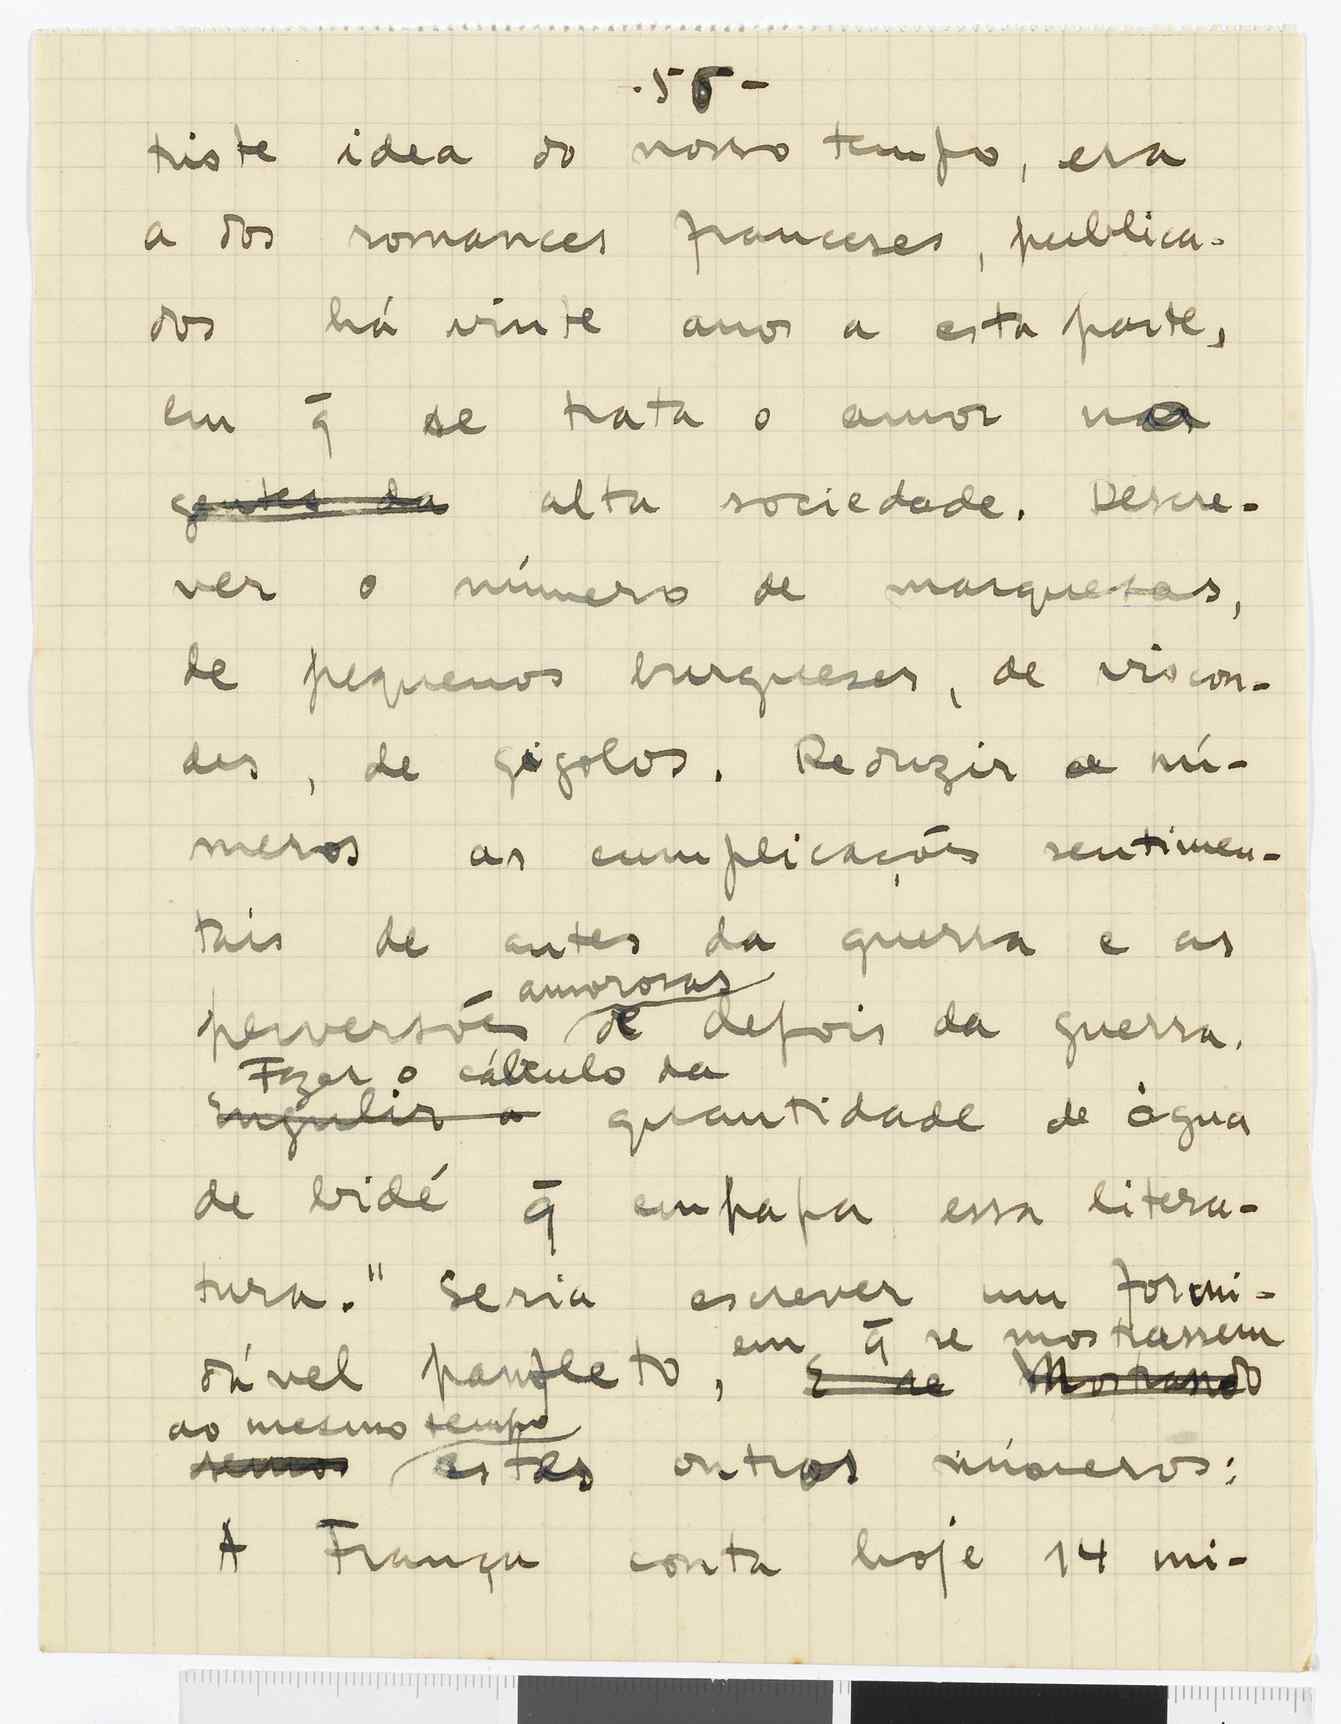 triste idea do nosso tempo, era
a dos romances franceses, publica-
dos há vinte anos a esta parte,
em q̄ se trata o amor na
gentes da alta sociedade. Descre-
ver o número de marquesas,
de pequenos burgueses, de viscon-
des, de gigolos. Reduzir a nú-
meros as complicações sentimen-
tais de antes da guerra e as
amorosas
perversões de depois da guerra.
Fazer o cálculo da
Engulir a quantidade de água
de bidé q̄ empapa essa litera-
tura." Seria escrever um formi-
em q̄ se mostrassem
dável panfleto, E se Mostrando
ao mesmo tempo
semos estes outros números:
A França conta hoje 14 mi-